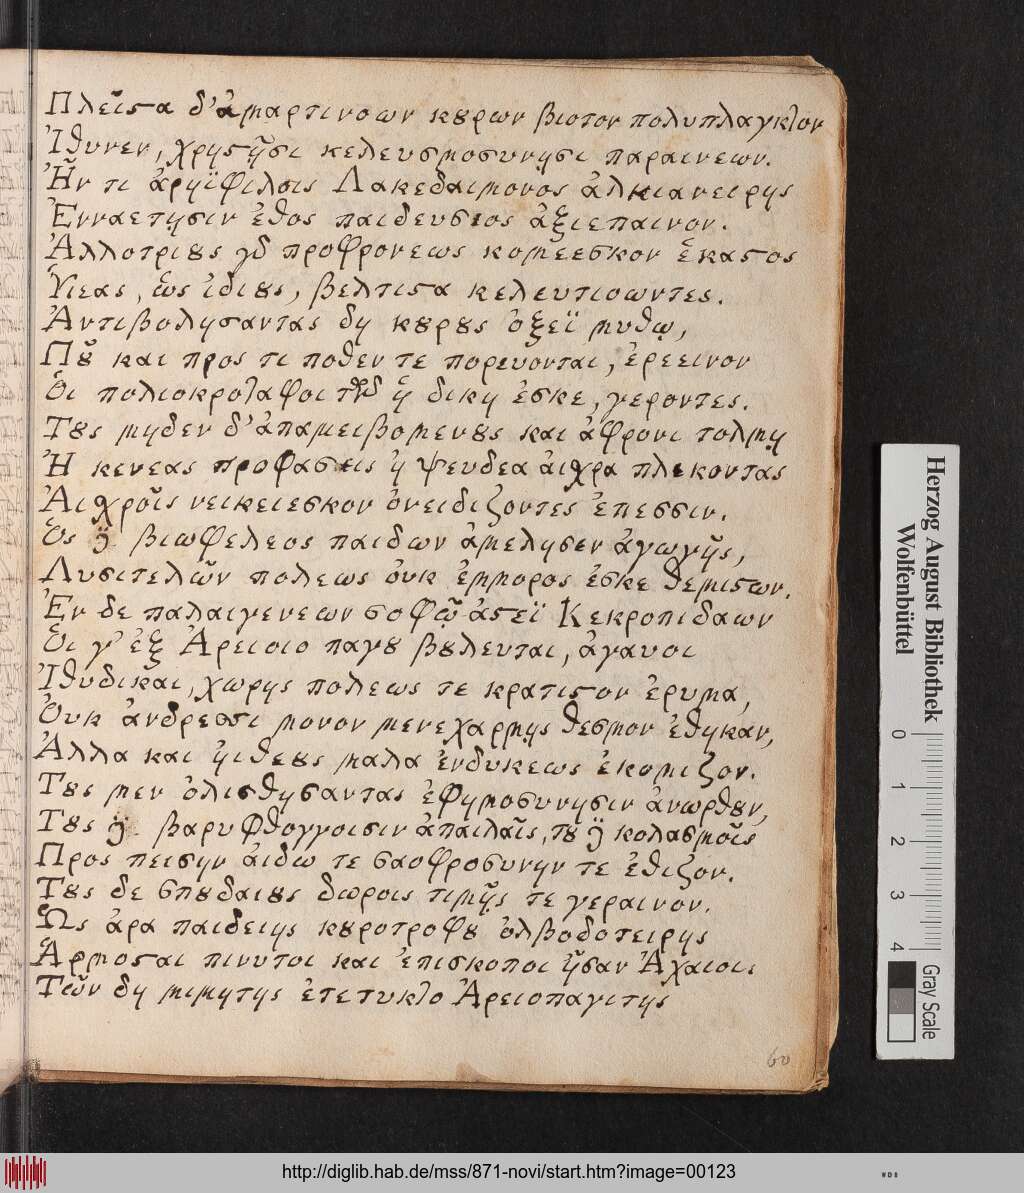 Πλεῖςα δ' ἁμαρτινοων κȣρων βιοτον πολυπλαγκτον
Ἰθυνεν, χρηςῇσι κελευσμοσυνησι παραινεων.
Ἦν τι ἀρηϊφιλοις Λακεδαιμονος ἀλκιανειρης
Ἐνναετησιν ἐθος παιδευσιος ἀξιεπαινον.
Ἀλλοτριȣς γδ προφρονεως κομεεσκον ἑκαςος
Ὑιεας, ὡς ἰδιȣς, βελτιςα κελευτιοωντες.
Ἀντιβολησαντας δη κȣρȣς ὀξεϊ μυθῳ,
Πȣ͂ και προς τι ποθεν τε πορευονται, ἐρεεινον
Ὁι πολιοκροταφοι ἡ δικη ἐσκε, γεροντες.
Τȣς μηδεν δ' ἀπαμειβομενȣς και ἀφρονι τολμῃ
Ἠ κενεας προφασεις ἠ ψευδεα ἀιχρα πλεκοντας
Ἀιχροῖς νεικειεσκον ὀνειδιζοντες ἐπεσσιν.
Ὁς βιωφελεος παιδων ἀμελησεν ἀγωγῆς,
Λυσιτελῶν πολεως ὀυκ ἐμμορος ἐσκε θεμιςων.
Ἐν δε παλαιγενεων σοφῷ ἀςεϊ Κεκροπιδαων
Ὁι γ' ἐξ Ἀρειοιο παγȣ βȣλευται, ἀγαυοι
Ἰθυδικαι, χωρης πολεως τε κρατιςον ἐρυμα,
Ὀυκ ἀνδρεσσι μονον μενεχαρμῃς θεσμον ἐθηκαν,
Ἀλλα και ἠιθεȣς μαλα ἐνδυκεως ἐκομιζον.
Τȣς μεν ὀλισθησαντας ἐφημοσυνησιν ἀνωρθȣν,
Τȣς βαρυφθογγοισιν ἀπειλαῖς, τȣ κολασμοῖς
Προς πεισην ἀιδω τε σαοφροσυνην τε ἐθιζον.
Τȣς δε σπȣδαιȣς δωροις τιμῇς τε γεραινον.
Ὡς ἀρα παιδειης κȣροτροφȣ ὀλβοδοτειρης
Ἁρμοςαι πινυτοι και ἐπισκοποι ἦσαν Ἀχαιοι:
Τῶν δη μιμητης ἐτετυκτο Ἀρειοπαγιτης
60
Herzog August Bibliothek
Wolfenbüttel
0 1 2 3 4
Gray Scale
http://diglib.hab.de/mss/871-novi/start.htm?image=00123